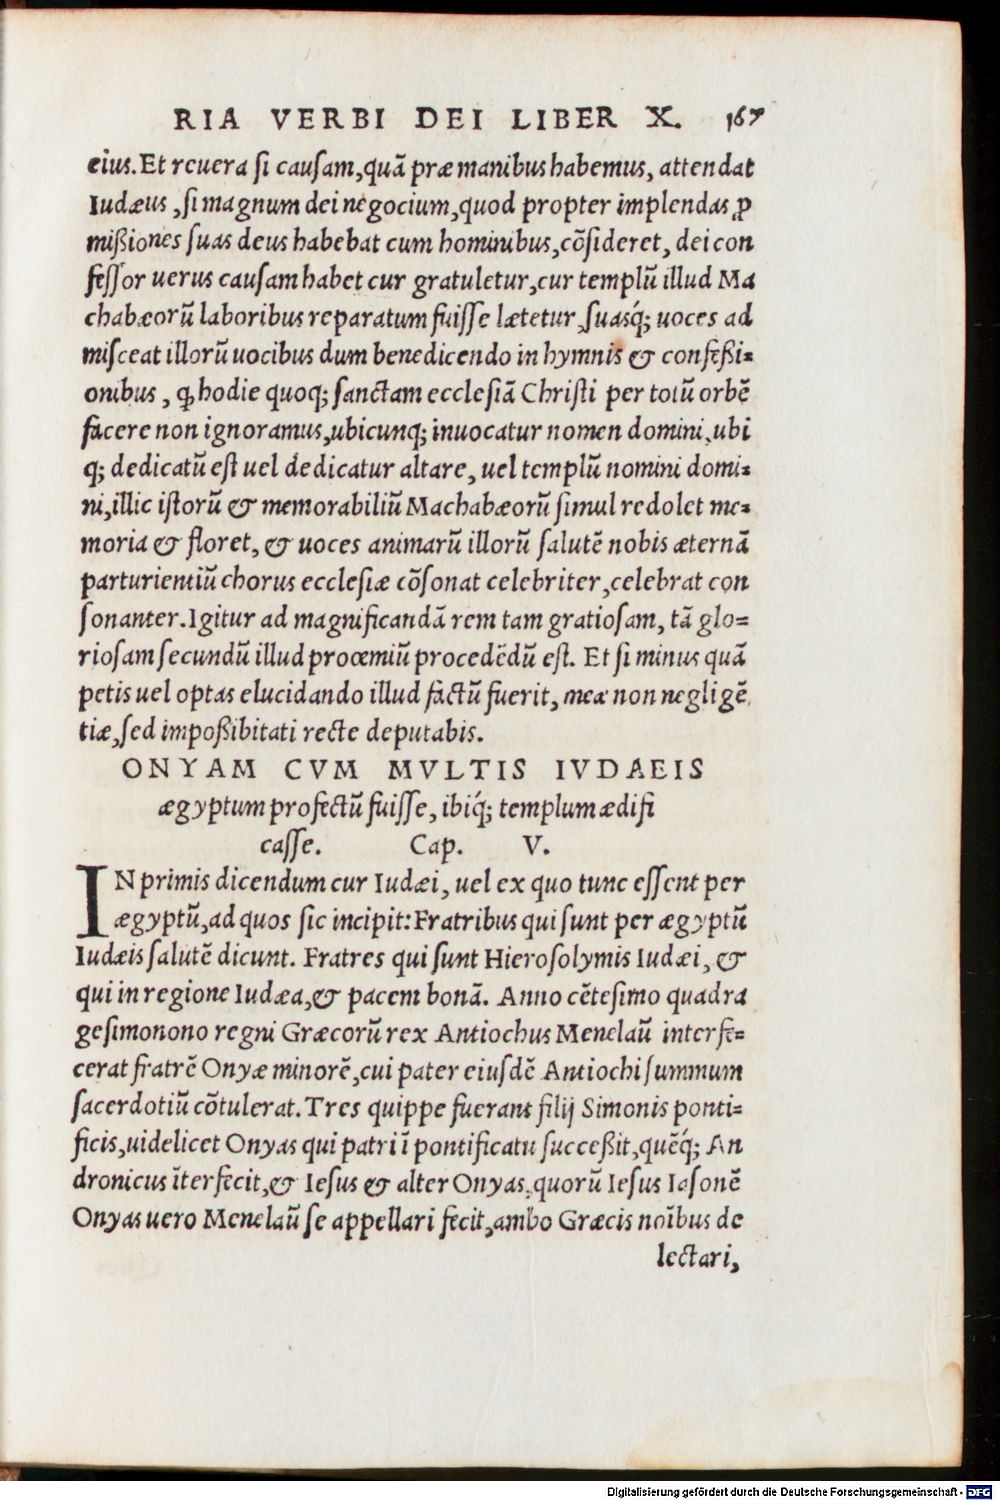 RIA VERBI DEI LIBER X. 167
eius. Et reuera si causam, quā præ manibus habemus, attendat
Iudæus, si magnum dei negocium, quod propter implendas ꝓ
mißiones suas deus habebat cum hominibus, cōsideret, dei con
fessor uerus causam habet cur gratuletur, cur templū illud Ma
chabæorū laboribus reparatum fuisse lætetur, suasq́; uoces ad
misceat illorū uocibus dum benedicendo in hymnis & confeßi=
onibus, ꝙ hodie quoq; sanctam ecclesiā Christi per totū orbē
facere non ignoramus, ubicunq; inuocatur nomen domini, ubi
q; dedicatū est uel dedicatur altare, uel templū nomini domi=
ni, illic istorū & memorabiliū Machabæorū simul redolet me=
moria & floret, & uoces animarū illorū salutē nobis æternā
parturientiū chorus ecclesiæ cōsonat celebriter, celebrat con
sonanter. Igitur ad magnificandā rem tam gratiosam, tā glo=
riosam secundū illud proœmiū procedēdū est. Et si minus quā
petis uel optas elucidando illud factū fuerit, meæ non negligē
tiæ, sed impoßibitati recte deputabis.
ONYAM CVM MVLTIS IVDAEIS
ægyptum profectū fuisse, ibiq́; templum ædifi
casse. Cap. V.
IN primis dicendum cur Iudæi, uel ex quo tunc essent per
ægyptū, ad quos sic incipit: Fratribus qui sunt per ægyptū
Iudæis salutē dicunt. Fratres qui sunt Hierosolymis Iudæi, &
qui in regione Iudæa, & pacem bonā. Anno cētesimo quadra
gesimonono regni Græcorū rex Antiochus Menelaū interfe=
cerat fratrē Onyæ minorē, cui pater eiusdē Antiochi summum
sacerdotiū cōtulerat. Tres quippe fuerant filij Simonis ponti=
ficis, uidelicet Onyas qui patri ī pontificatu succeßit, quēq́; An
dronicus īterfecit, & Iesus & alter Onyas, quorū Iesus Iasonē
Onyas uero Menelaū se appellari fecit, ambo Græcis noībus de
lectari,
Digitalisierung gefördert durch die Deutsche Forschungsgemeinschaft - DFG